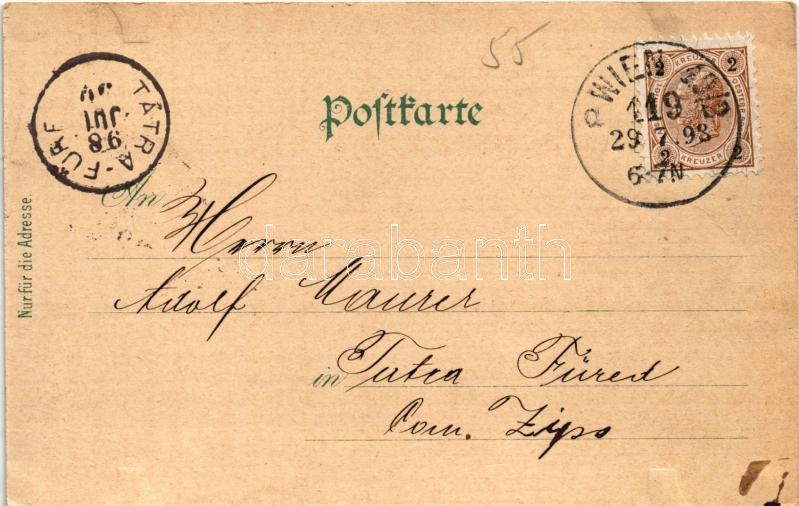 55
Postkarte
TÁTRA-FÜRF
98
JUL
30
WIEN
119
29.7.98
6-7N
2 KREUZER 2
2 KREUZER 2
Nur für die Adresse.
An
Herrn
Adolf Maurer
in Tatra Füred
Com. Zips
darabanth